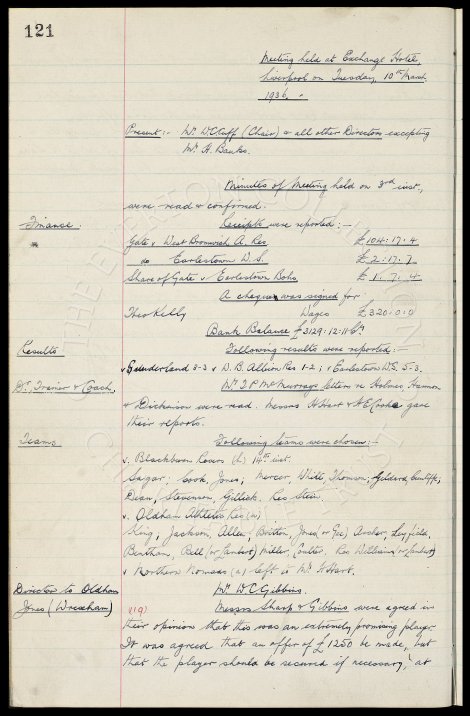 121
Meeting held at Exchange Hotel,
Liverpool on Tuesday, 10th March,
1936.
Present:- Mr. W.C. Cuff (Chair) & all other Directors excepting
Mr. A. Banks.
Minutes of Meeting held on 3rd inst.,
were read & confirmed.
Finance. Receipts were reported:-
Gate v West Bromwich A. Res £104.17.4
do Earlestown W.S. £2.17.7
Share of Gate v Earlestown Boho £1.7.4
A cheque was signed for
Theo Kelly Wages £320.0.0
Bank Balance £3129.12.11
Results Following results were reported:
v Sunderland 3-3 v W.B. Albion Res 1-2; v Earlestown W.S. 5-3.
Dr. Trainer & Coach. Mr. J.P. McMurray's letters re Holmes, Harmon
& Dickinson were read. Messrs H. Hart & H.E. Cooke gave
their reports.
Teams Following teams were chosen:-
v. Blackburn Rovers (h) 14th inst.
Sagar; Cook, Jones; Mercer, White, Thomson; Geldard, Cunliffe,
Dean, Stevenson, Gillick. Res Stein.
v. Oldham Athletic Res (h)
King; Jackson, Allen; Britton, Jones (or Gee) Archer; Leyfield,
Bentham, Bell Miller, Coulter. Res Williams
v Northern Nomads (a) left to Mr. H. Hart.
Director to Oldham Mr. W.C. Gibbins.
Jones (Wrexham) Messrs Sharp & Gibbins were agreed in
their opinion that this was an extremely promising player
It was agreed that an offer of £1250 be made, but
that the player should be secured if necessary, at